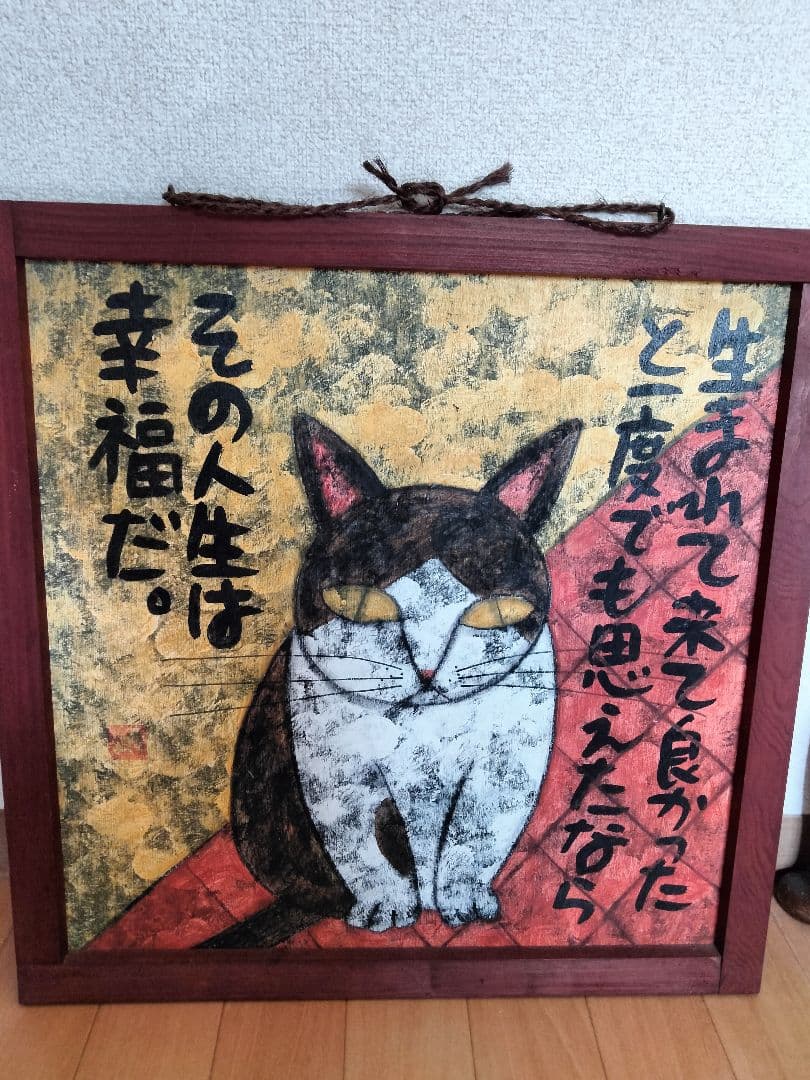 生まれて来て良かった
と一度でも思えたなら
その人生は
幸福だ。